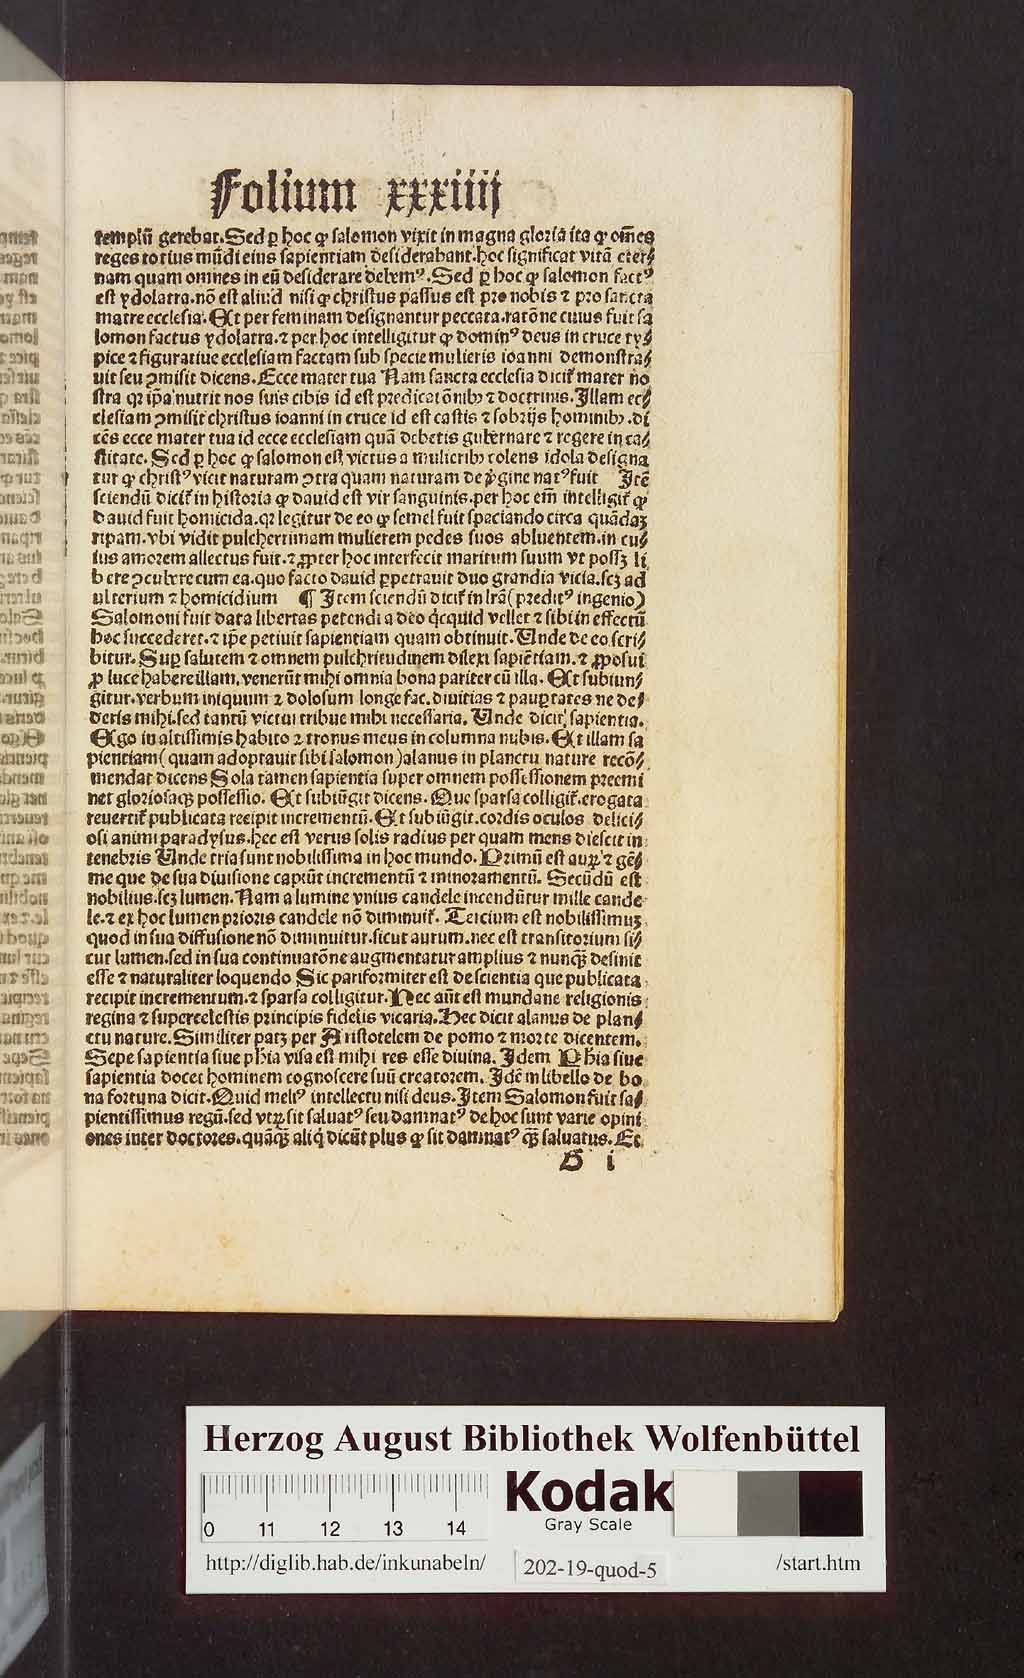 Folium xxxiiij
templū gerebat. Sed ꝑ hoc ꝙ salomon vixit in magna gloria ita ꝙ om̄es
reges totius mūdi eius sapientiam desiderabant. hoc significat vitā eter⸗
nam quam omnes in eū desiderare debemꝰ. Sed ꝑ hoc ꝙ salomon factꝰ
est ydolatra. nō est aliud nisi ꝙ christus passus est pro nobis ⁊ pro sancta
matre ecclesia. Et per feminam designantur peccata. ratōne cuius fuit sa
lomon factus ydolatra. ⁊ per hoc intelligitur ꝙ dominꝰ deus in cruce ty⸗
pice ⁊ figuratiue ecclesiam factam sub specie mulieris ioanni demonstra⸗
uit seu ꝯmisit dicens. Ecce mater tua Nam sancta ecclesia dicit᷑ mater no
stra qꝛ ip̄a nutrit nos suis cibis id est predicatōnibꝰ ⁊ doctrinis. Illam ec⸗
clesiam ꝯmisit christus ioanni in cruce id est castis ⁊ sobrijs hominibꝰ. di
cēs ecce mater tua id ecce ecclesiam quā debetis gubernare ⁊ regere in ca⸗
stitate. Sed ꝑ hoc ꝙ salomon est victus a mulieribꝰ colens idola designa
tur ꝙ christꝰ vicit naturam ꝯtra quam naturam de v̓gine natꝰ fuit Itē
sciendū dicit᷑ in historia ꝙ dauid est vir sanguinis. per hoc em̄ intelligit᷑ ꝙ
Dauid fuit homicida. qꝛ legitur de eo ꝙ semel fuit spaciando circa quādaꝫ
ripam. vbi vidit pulcherrimam mulierem pedes suos abluentem. in cu⸗
ius amorem allectus fuit. ⁊ ꝓpter hoc interfecit maritum suum vt possꝫ li
bere ꝯcubere cum ea. quo facto dauid ꝑpetrauit duo grandia vicia. scꝫ ad
ulterium ⁊ homicidium ¶ Item sciendū dicit᷑ in lr̄a (preditꝰ ingenio)
Salomoni fuit data libertas petendi a deo q̇cquid vellet ⁊ sibi in effectū
hoc succederet. ⁊ ip̄e petiuit sapientiam quam obtinuit. Unde de eo scri⸗
bitur. Suꝑ salutem ⁊ omnem pulchritudinem dilexi sapiētiam. ⁊ ꝓposui
ꝓ luce habere illam. venerūt mihi omnia bona pariter cū illa. Et subiun⸗
gitur. verbum iniquum ⁊ dolosum longe fac. diuitias ⁊ pauꝑtates ne de⸗
deris mihi. sed tantū victui tribue mihi necessaria. Unde dicit sapientia.
Ego in altissimis habito ⁊ tronus meus in columna nubis. Et illam sa
pientiam (quam adoptauit sibi salomon) alanus in planctu nature recō⸗
mendat dicens Sola tamen sapientia super omnem possessionem preemi
net gloriosaqꝫ possessio. Et subiūgit dicens. Que sparsa colligit᷑. erogata
reuertit᷑ publicata recipit incrementū. Et subiūgit. cordis oculos delici⸗
osi animi paradysus. hec est verus solis radius per quam mens diescit in
tenebris Unde tria sunt nobilissima in hoc mundo. Primū est auꝝ ⁊ gē⸗
me que de sua diuisione capiūt incrementū ⁊ minoramentū. Secūdū est
nobilius. scꝫ lumen. Nam a lumine vnius candele incendūtur mille cande
le. ⁊ ex hoc lumen prioris candele nō diminuit᷑. Tercium est nobilissimuꝫ
quod in sua diffusione nō diminuitur. sicut aurum. nec est transitorium si⸗
cut lumen. sed in sua continuatōne augmentatur amplius ⁊ nunqꝫ̄ desinit
esse ⁊ naturaliter loquendo Sic pariformiter est de scientia que publicata
recipit incrementum. ⁊ sparsa colligitur. Nec aūt est mundane religionis
regina ⁊ supercelestis principis fidelis vicaria. Hec dicit alanus de plan⸗
ctu nature. Similiter patꝫ per Aristotelem de pomo ⁊ morte dicentem.
Sepe sapientia siue ph̄ia visa est mihi res esse diuina. Idem Ph̄ia siue
sapientia docet hominem cognoscere suū creatorem. Idē in libello de bo
na fortuna dicit. Quid meliꝰ intellectu nisi deus. Item Salomon fuit sa⸗
pientissimus regū. sed vtꝝ sit saluatꝰ seu damnatꝰ de hoc sunt varie opini
ones inter doctores. quāqꝫ̄ aliq̇ dicūt plus ꝙ sit damnatꝰ qꝫ̄ saluatus. Et
i
Herzog August Bibliothek Wolfenbüttel
Kodak
Gray Scale
0 11 12 13 14
http://diglib.hab.de/inkunabeln/ 202-19-quod-5 /start.htm